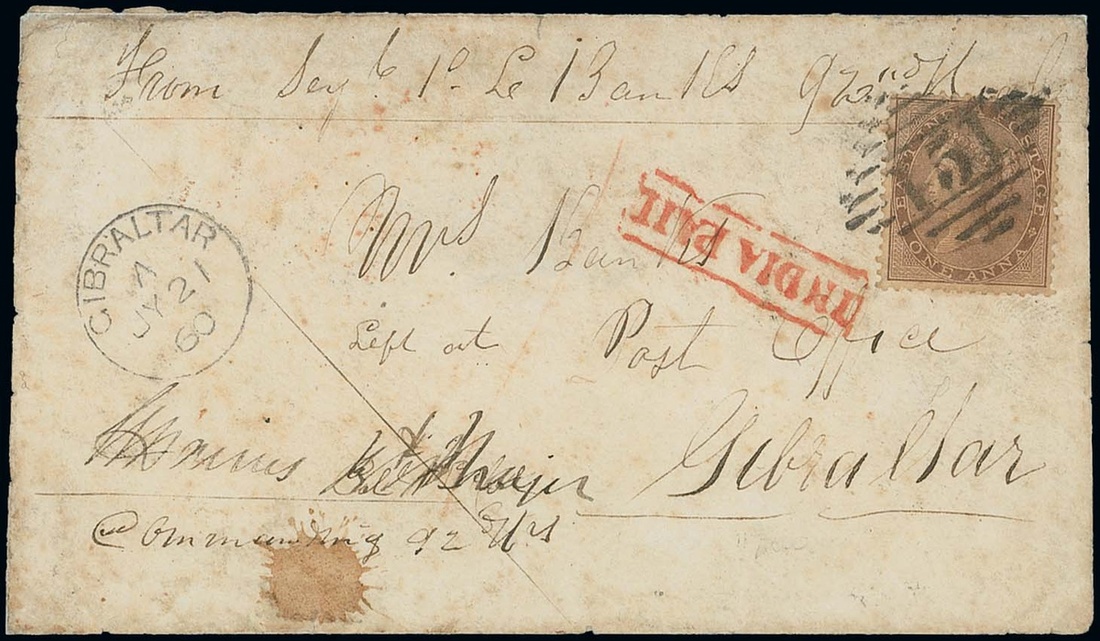 From Serjt 92nd
EAST INDIA POSTAGE
ONE ANNA
131
GIBRALTAR
A
JY 21
60
INDIA PAID
Mrs Banks
Left at Post Office
Gibraltar
Major
Commanding 92 Hrs